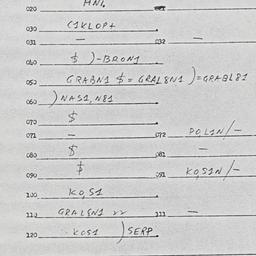 020 HNL
030 CIKLOP+
031 — 032 —
040 $ )-BRON1
050 GRABN1 $= GRAL8N1 )=GRABL81
060 )NAS1, N81
070 $
071 — 072 POLIN/—
080 $ 081 —
090 $ 091 KOSIN/—
100 KO,S1
110 GRALSN1 22 111 —
120 KOS1 )SERP